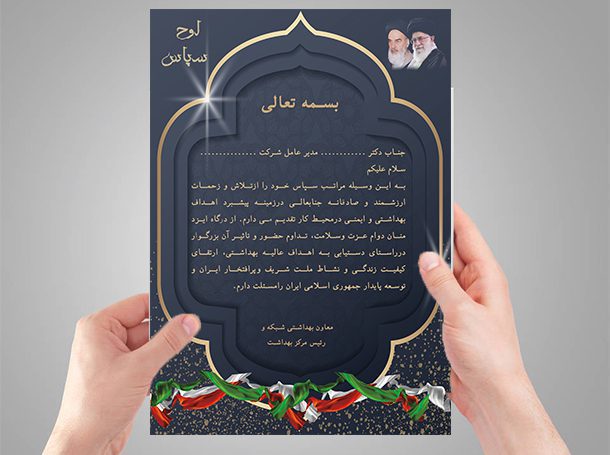 لوح
سپاس
بسمه تعالی
جناب دکتر ............ مدیر عامل شرکت ...............
سلام علیکم
به این وسیله مراتب سپاس خود را ازتلاش و زحمات
ارزشمند و صادقانه جنابعالی درزمینه پیشبرد اهداف
بهداشتی و ایمنی درمحیط کار تقدیم می دارم. از درگاه ایزد
منان دوام عزت وسلامت، تداوم حضور و تاثیر آن بزرگوار
درراستای دستیابی به اهداف عالیه بهداشتی، ارتقای
کیفیت زندگی و نشاط ملت شریف وپرافتخار ایران و
توسعه پایدار جمهوری اسلامی ایران رامسئلت دارم.
معاون بهداشتی شبکه و
رئیس مرکز بهداشت